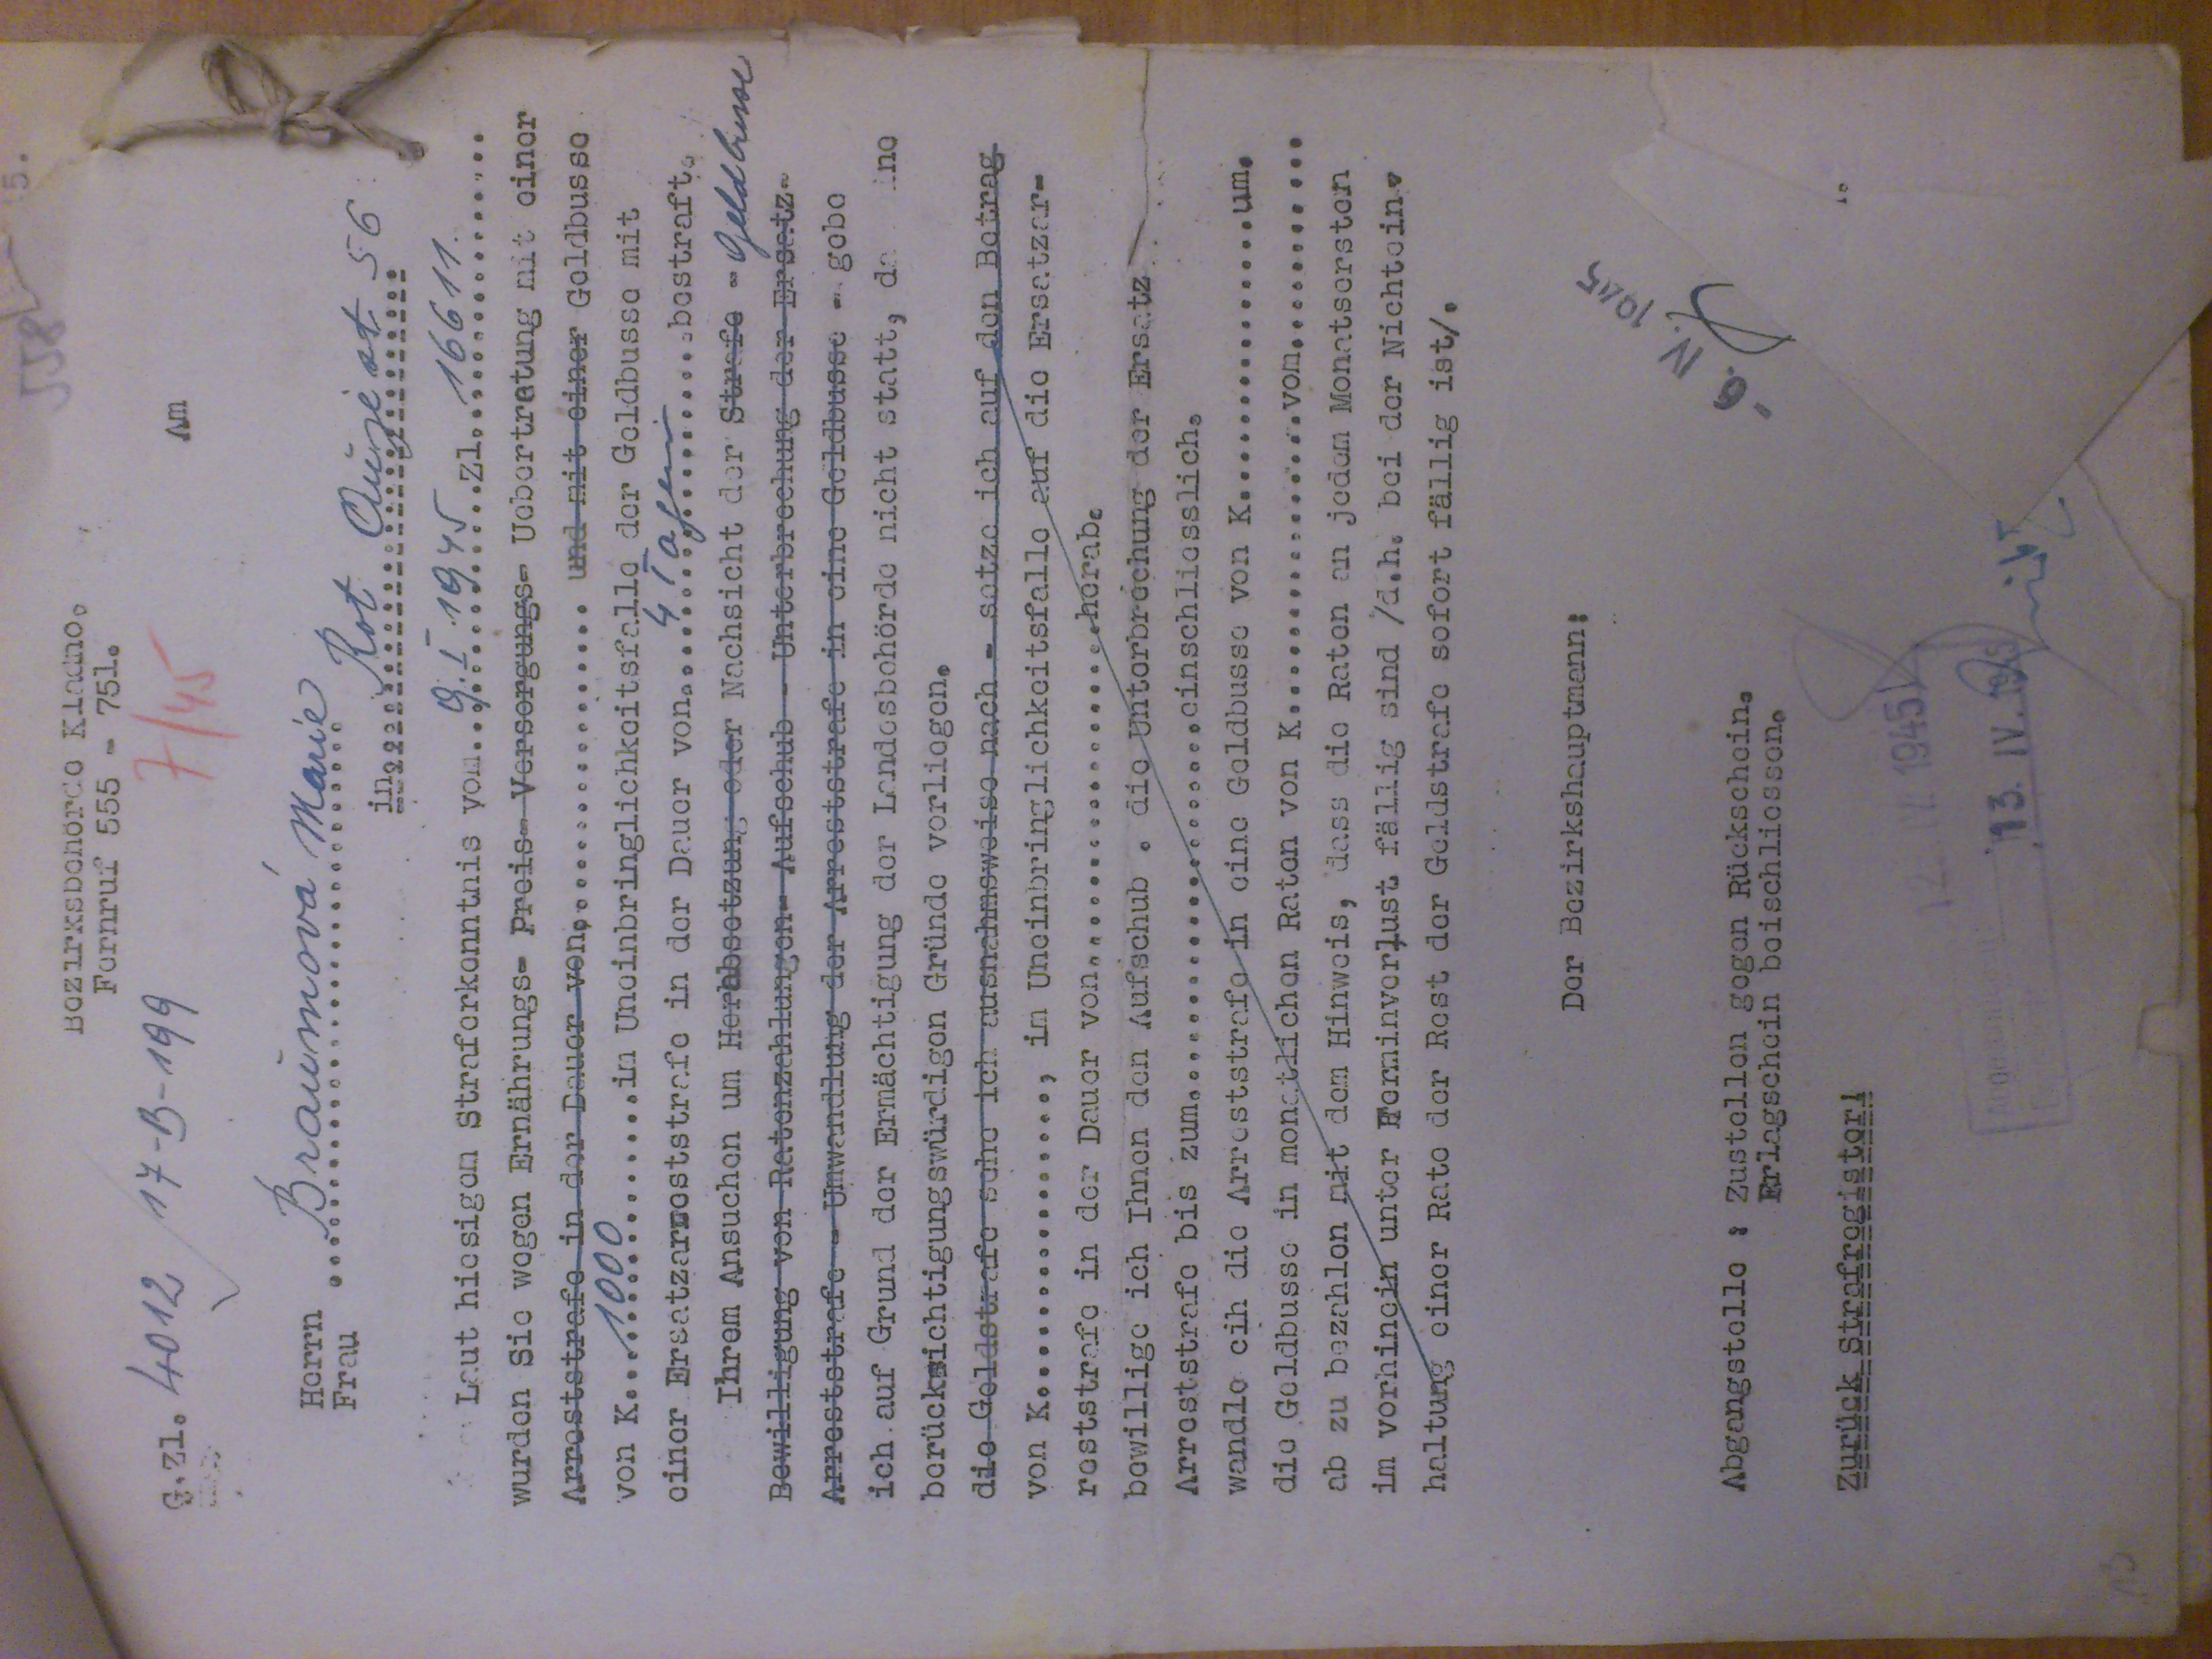 558
5.
Bezirksbehörde Kladno.
Fernruf 555 - 751.
G.Zl. 4012 17-B-199
7/45
Am
Herrn
Frau
Braumová Marie
in Rot Aujest 56
Laut hiesigem Straferkenntnis vom..9.I.1945.Zl. 16611.
wurden Sie wegen Ernährungs- Preis- Versorgungs- Uebertretung mit einer
Arreststrafe in der Dauer von.................. und mit einer Geldbusse
von K....1000.........im Uneinbringlichkeitsfalle der Geldbusse mit
einer Ersatzarreststrafe in der Dauer von....4 Tagen.......bestraft.
Ihrem Ansuchen um Herabsetzung oder Nachsicht der Strafe - Geldbusse
Bewilligung von Ratenzahlungen- Aufschub - Unterbrechung der Ersatz-
Arreststrafe - Umwandlung der Arreststrafe in eine Geldbusse - gebe
ich auf Grund der Ermächtigung der Landesbehörde nicht statt, da
berücksichtigungswürdigen Gründe vorliegen.
die Geldstrafe sehe ich ausnahmsweise nach - setze ich auf den Betrag
von K................., im Uneinbringlichkeitsfalle auf die Ersatzar-
reststrafe in der Dauer von...................herab.
bewillige ich Ihnen den Aufschub . die Unterbrechung der Ersatz
Arreststrafe bis zum.....................einschliesslich.
wandle cih die Arreststrafe in eine Geldbusse von K................um.
die Geldbusse in monatlichen Raten von K.................vom............
ab zu bezahlen mit dem Hinweis, dass die Raten an jedem Monatsersten
im vorhinein unter Terminverlust fällig sind /d.h. bei der Nichtein-
haltung einer Rate der Rest der Geldstrafe sofort fällig ist/.
Der Bezirkshauptmann:
- 6. IV. 1945
Abgangstelle : Zustellen gegen Rückschein.
Erlagschein beischliessen.
Zurück Strafregister!
12. IV. 1945
13. IV. 1945
13